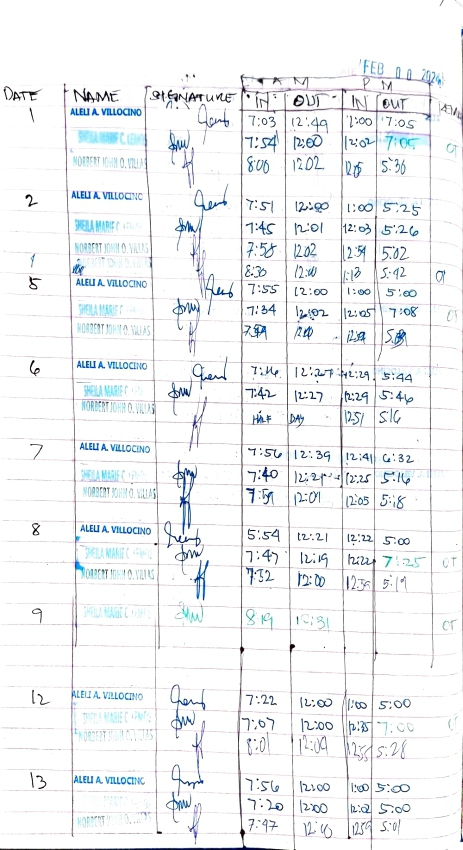 FEB 00 2024
AM PM
DATE NAME SIGNATURE IN OUT IN OUT
1 ALELI A. VILLOCINO 7:03 12:49 1:00 7:05
SHEILA MARIE C. 7:54 12:00 12:02 7:05 OT
NORBERT JOHN O. VILLAS 8:00 12:02 5:30
2 ALELI A. VILLOCINO 7:51 12:00 1:00 5:25
SHEILA MARIE C. 7:45 12:01 12:03 5:26
NORBERT JOHN O. VILLAS 7:58 12:02 12:59 5:02
8:30 12:00 1:13 5:42 OT
5 ALELI A. VILLOCINO 7:55 12:00 1:00 5:00
SHEILA MARIE C. 7:34 12:02 12:05 7:08 OT
NORBERT JOHN O. VILLAS
6 ALELI A. VILLOCINO 7:16 12:27 12:29 5:44
SHEILA MARIE C. 7:42 12:27 12:29 5:46
NORBERT JOHN O. VILLAS HALF DAY 12:51 5:16
7 ALELI A. VILLOCINO 7:56 12:39 12:41 6:32
SHEILA MARIE C. 7:40 12:21 12:25 5:16
NORBERT JOHN O. VILLAS 7:59 12:01 12:05 5:18
8 ALELI A. VILLOCINO 5:54 12:21 12:22 5:00
SHEILA MARIE C. 7:47 12:19 12:22 7:25 OT
NORBERT JOHN O. VILLAS 7:52 12:00 5:19
9 SHEILA MARIE C. 8:19 OT
12 ALELI A. VILLOCINO 7:22 12:00 1:00 5:00
SHEILA MARIE C. 7:07 12:00 12:35 7:00
NORBERT JOHN O. VILLAS 8:01 12:09 12:55 5:28
13 ALELI A. VILLOCINO 7:56 12:00 1:00 5:00
7:20 12:00 12:02 5:00
NORBERT JOHN O. VILLAS 7:47 12:59 5:01